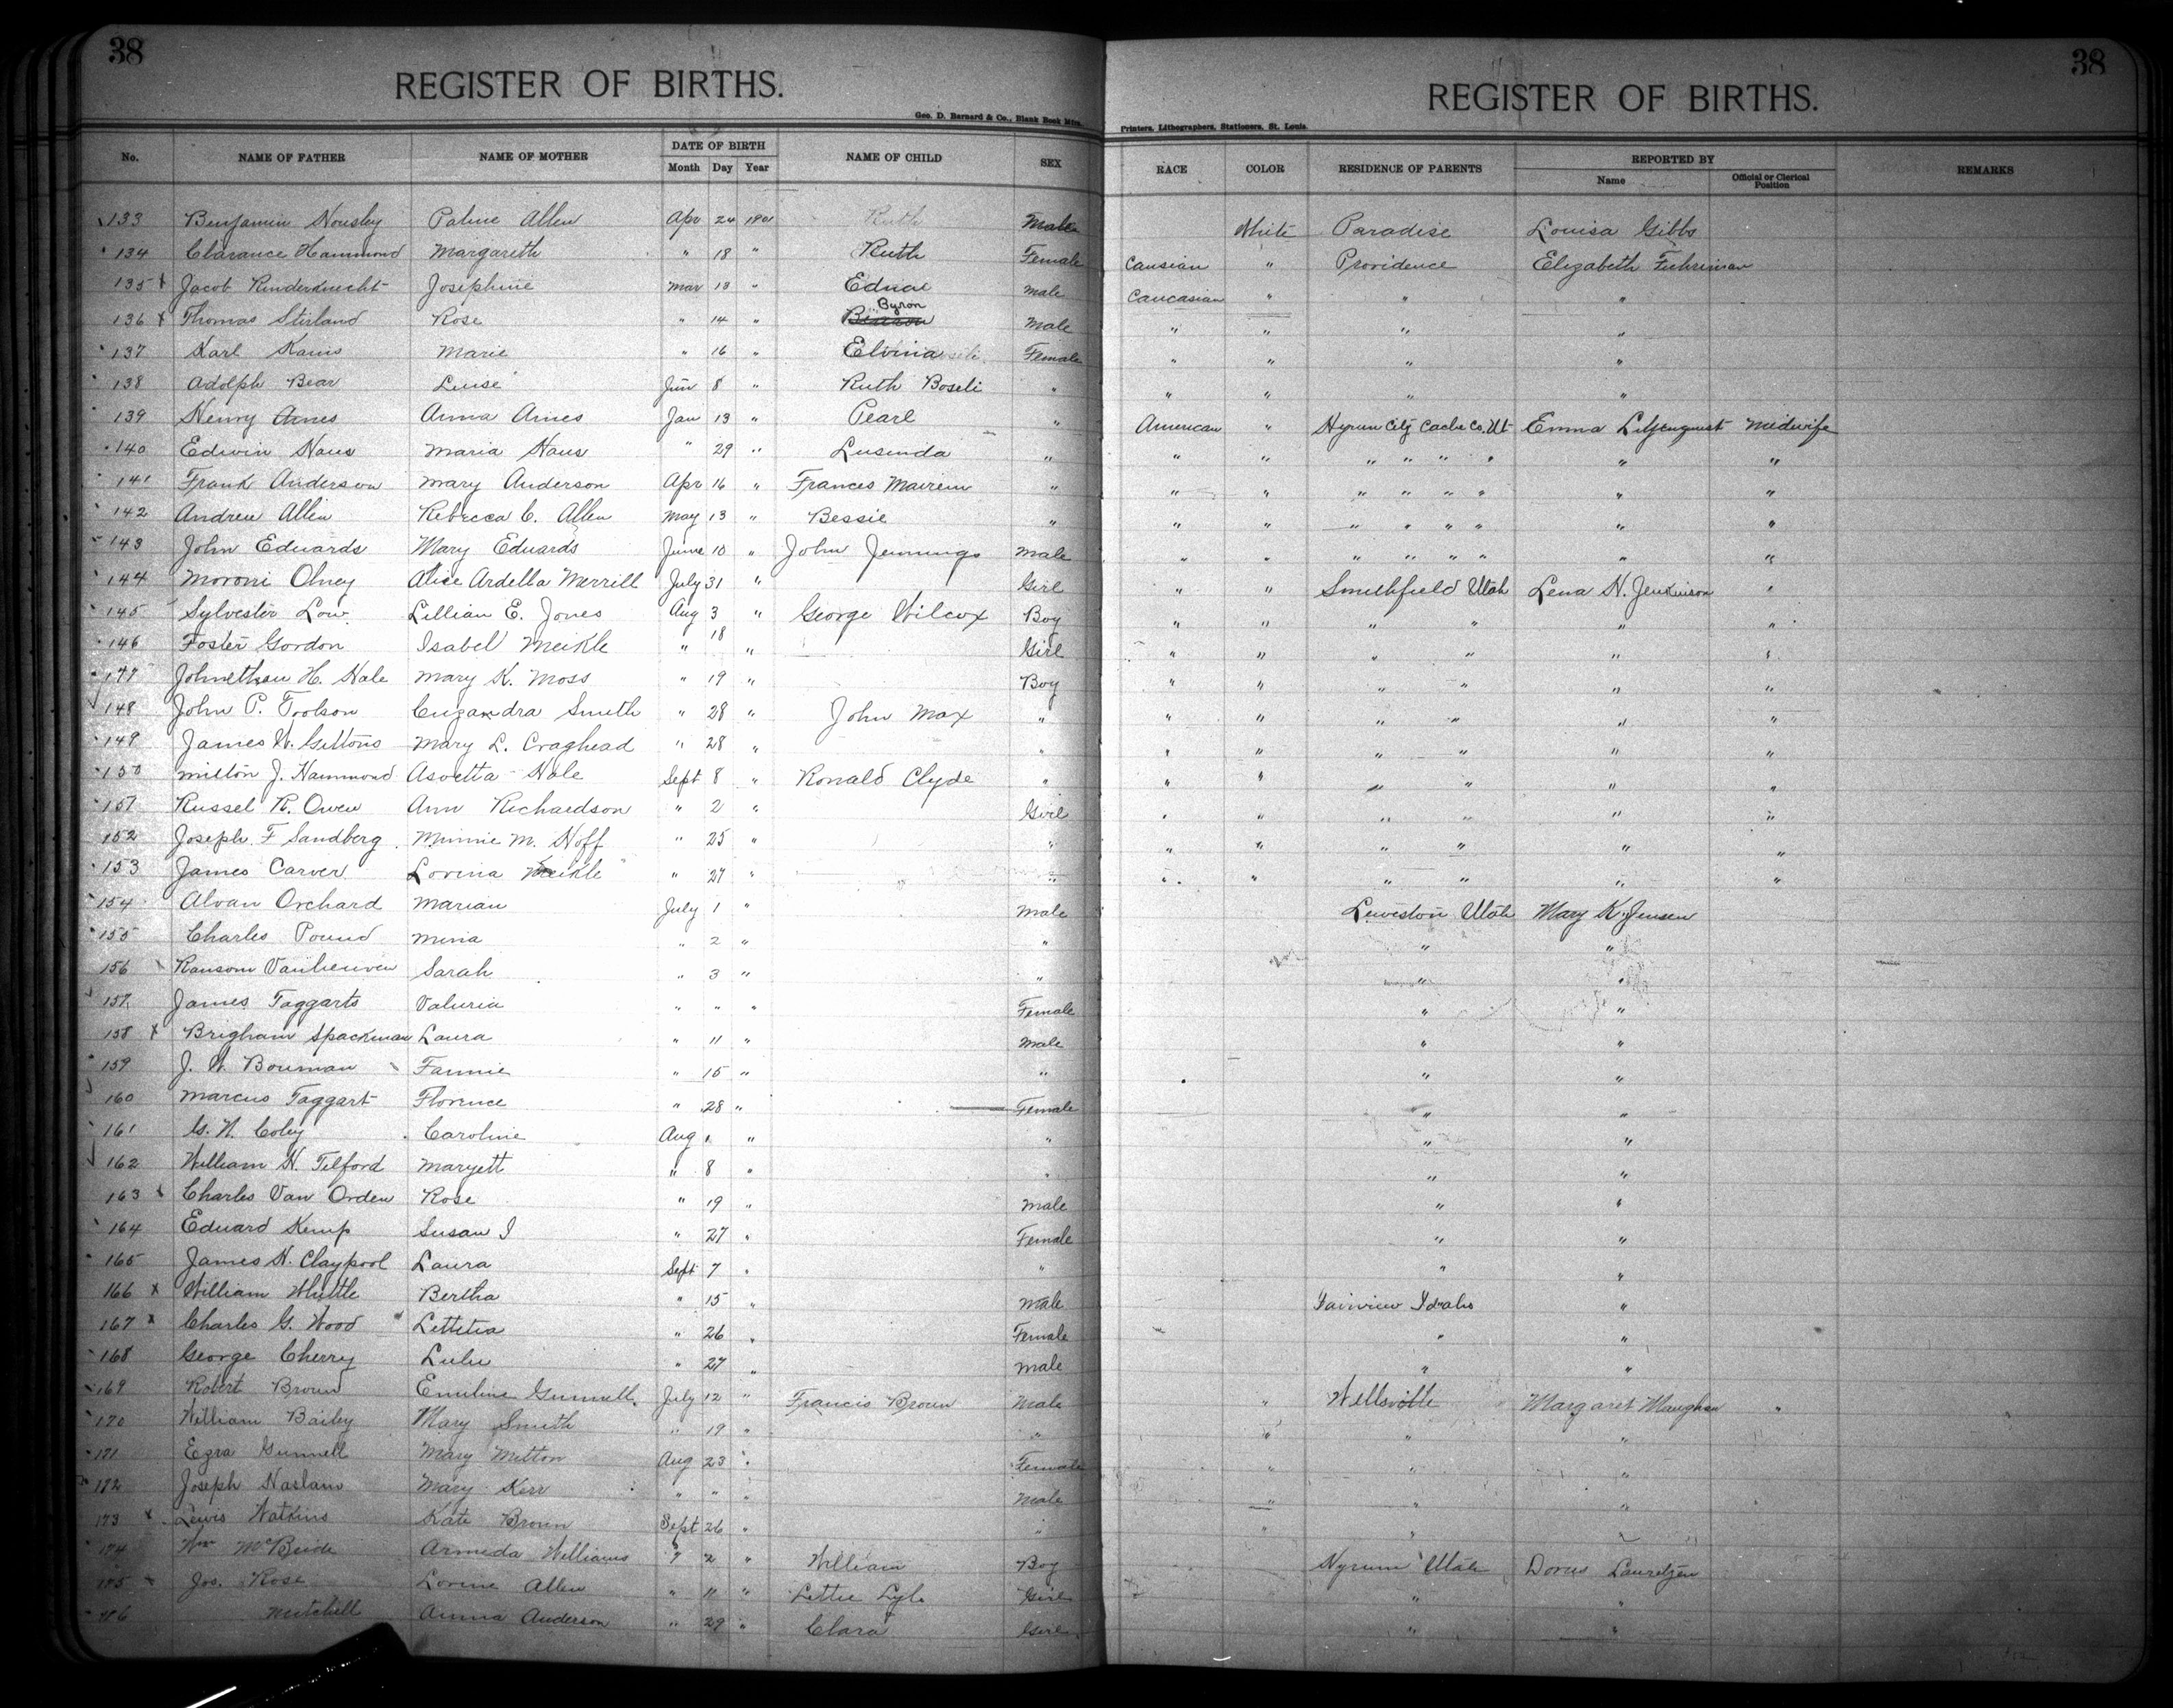 38 38
REGISTER OF BIRTHS. REGISTER OF BIRTHS.
Geo. D. Barnard & Co., Blank Book Mfrs. Printers, Lithographers, Stationers, St. Louis.
No. NAME OF FATHER NAME OF MOTHER DATE OF BIRTH Month Day Year NAME OF CHILD SEX RACE COLOR RESIDENCE OF PARENTS REPORTED BY Name Official or Clerical Position REMARKS
133 Benjamin Housley Allen Apr 24 1901 Ruth Male White Paradise Louisa Gibbs
134 Clarance Hammond Margareth " 18 " Ruth Female Causian " Providence Elizabeth Fuhriman
135 x Jacob Rinderknecht Josephine Mar 13 " male Caucasian " " "
136 x Thomas Stirland Rose " 14 " Byron Male " " " "
137 Karl Marie " 16 " Elvina Female " " " "
138 Adolph Bear Luise Jun 8 " Ruth Boseli " " " " "
139 Henry Ames Anna Ames Jan 13 " Pearl " American " Hyrum City Cache Co. Ut Emma Liljenquist Midwife
140 Edwin Haws Maria Haws " 29 " Lusinda " " " " " " " " "
141 Frank Anderson Mary Anderson Apr 16 " Frances " " " " " " " " "
142 Andrew Allen Rebecca C. Allen May 13 " Bessie " " " " " " " " "
143 John Edwards Mary Edwards June 10 " John Jennings Male " " " " " " " "
144 Moroni Olney Alice Ardella Merrill July 31 " Girl " " Smithfield Utah Lena H. Jenkinson "
145 Sylvester Low Lillian E. Jones Aug 3 " George Wilcox Boy " " " " " "
146 Foster Gordon Isabel Meikle " 18 " Girl " " " " " "
147 Johnethan H. Hale Mary K. Moss " 19 " Boy " " " " " "
148 John P. Toolson Smith " 28 " John Max " " " " " " "
149 James W. Gittons Mary L. Craghead " 28 " " " " " " " "
150 Milton J. Hammond Asvetta Hale Sept 8 " Ronald Clyde " " " " " " "
151 Russel K. Owen Ann Richardson " 2 " Girl " " " " " "
152 Joseph F Sandberg Minnie M. Hoff " 25 " " " " " " " "
153 James Carver Lovina Meikle " 27 " " " " " " " "
154 Alvan Orchard Marian July 1 " Male Lewiston Utah Mary K. Jensen
155 Charles Pound Mina " 2 " " " "
156 Ransom Sarah " 3 " " " "
157 James Taggarts Valuria " " " Female " "
158 x Brigham Spackman Laura " 11 " Male " "
159 J. W. Bowman Fannie " 15 " " " "
160 Marcus Taggart Florence " 28 " Female " "
161 Coley Caroline Aug 1 " " " "
162 William H. Telford Maryett " 8 " " " "
163 x Charles Van Orden Rose " 19 " Male " "
164 Edward Kemp Susan I " 27 " Female " "
165 James H. Claypool Laura Sept 7 " " " "
166 x William Whittle Bertha " 15 " Male Fairview Idaho "
167 x Charles G. Wood Lettetia " 26 " Female " "
168 George Cherry Lulu " 27 " Male " "
169 Robert Brown Emiline Gunnell July 12 " Francis Brown Male " Wellsville Margaret Maughan "
170 William Bailey Mary Smith " 19 " " " " "
171 Ezra Gunnell Mary Mitton Aug 23 " Female " " "
172 Joseph Haslam Mary Kerr " " " Male " " "
173 x Lewis Watkins Kate Brown Sept 26 " " " "
174 Wm McBride Armeda Williams " 2 " William Boy Hyrum Utah Dorus Lauritzen
175 Jos. Rose Allen " 11 " Lettie Girl " "
Mitchell Anna Anderson " 29 " Clara Girl " "